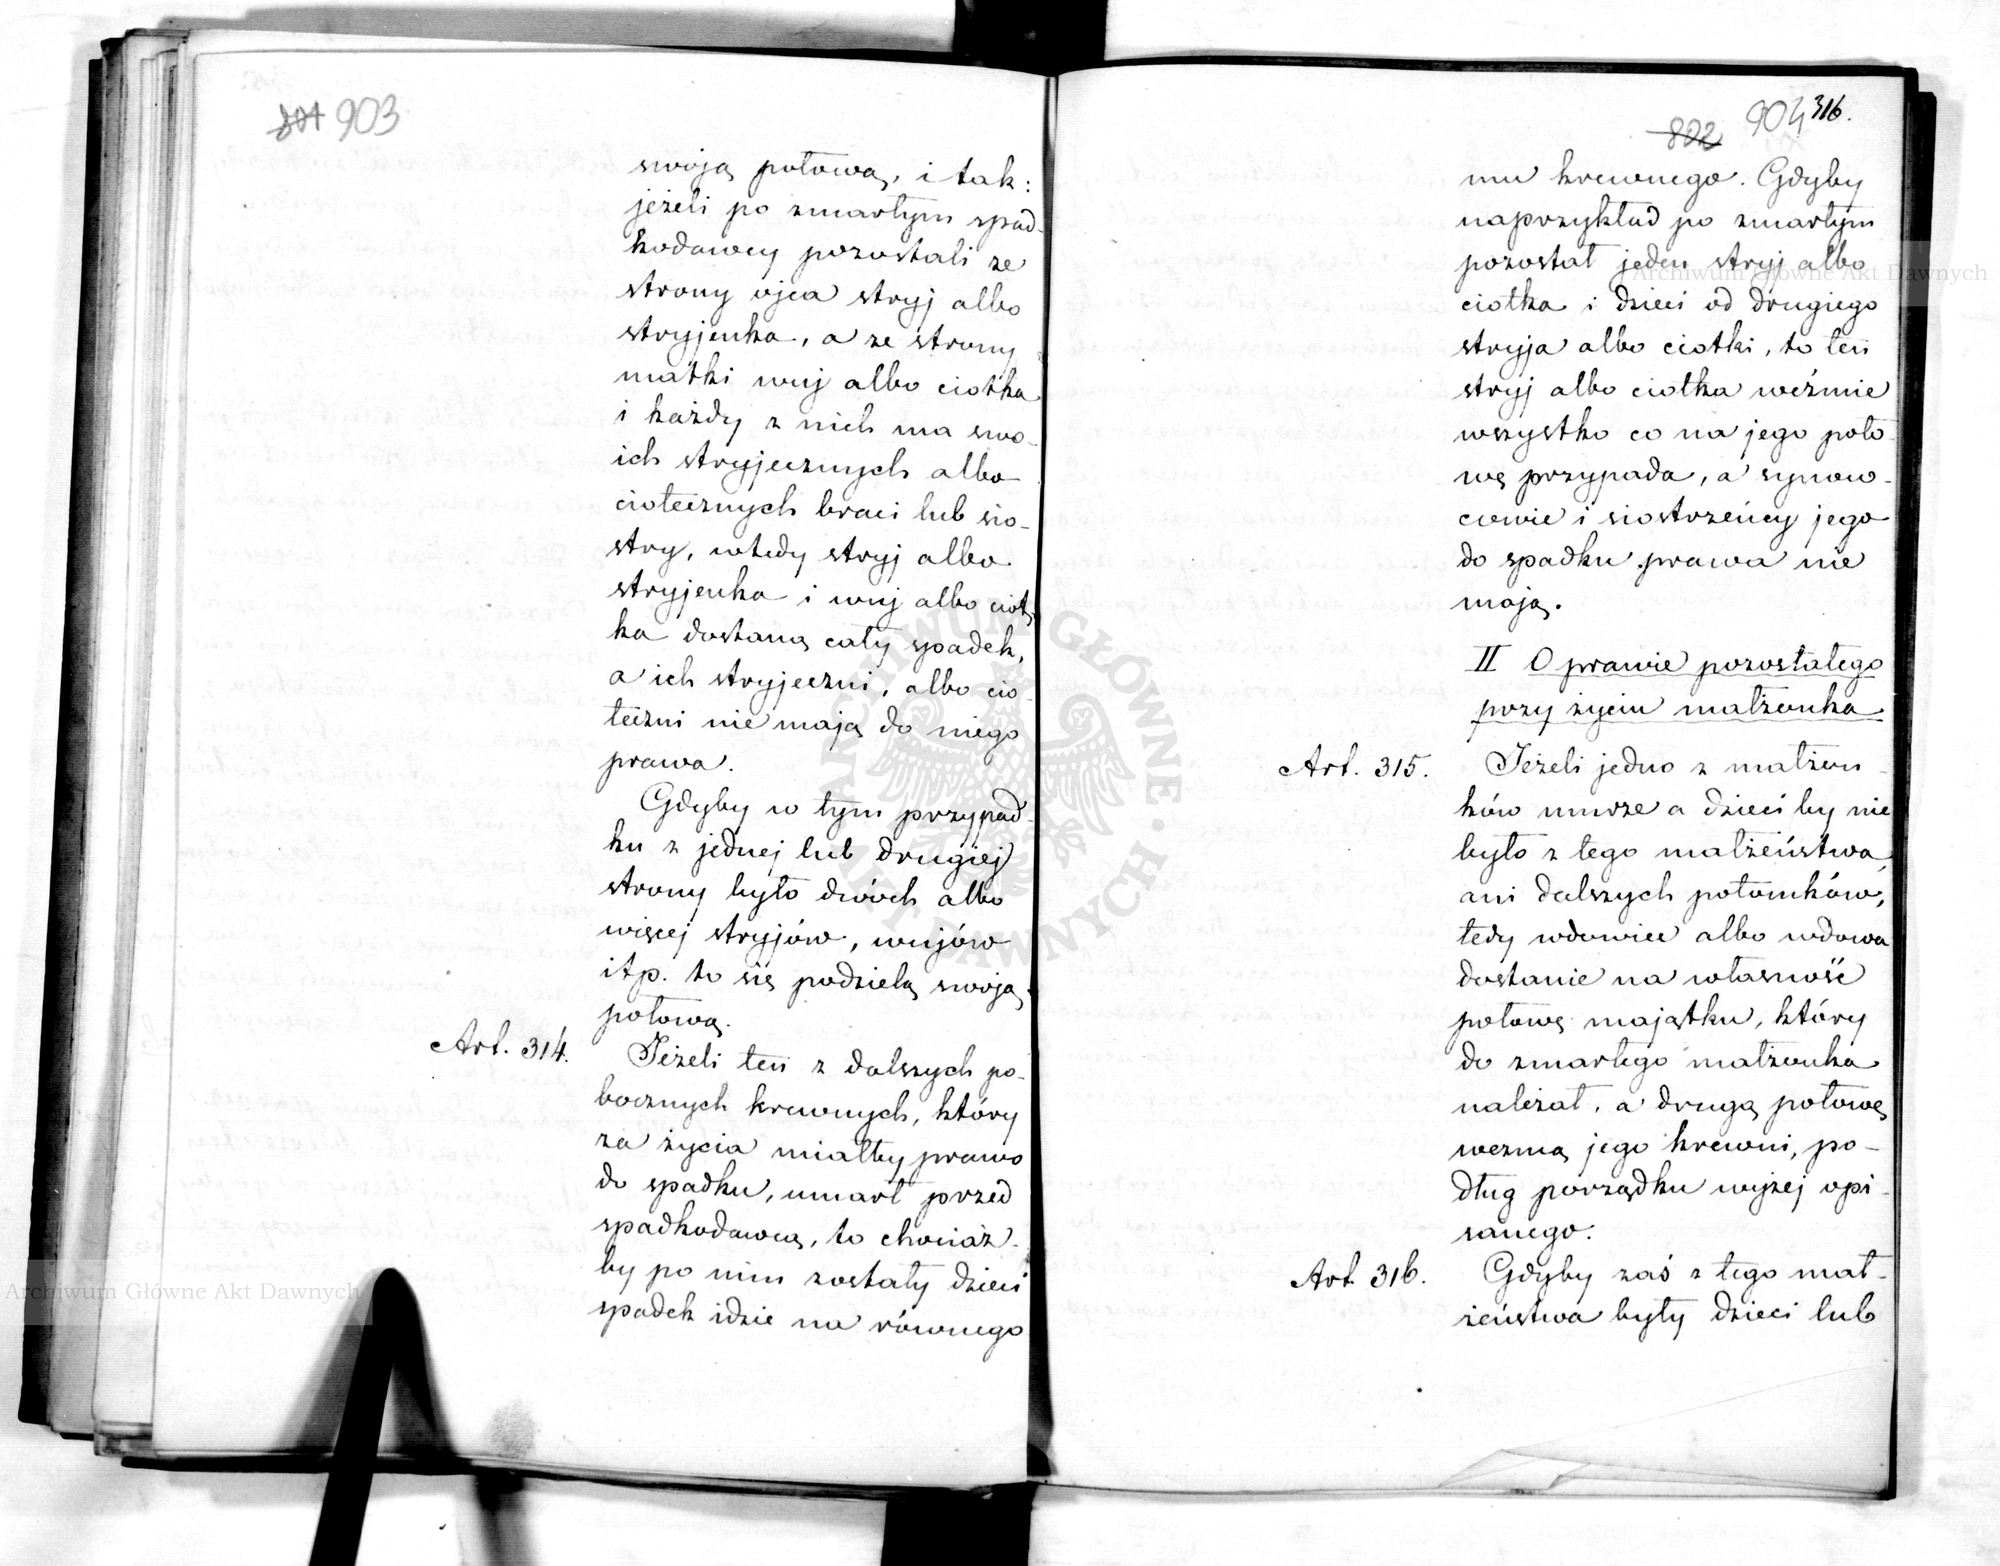 801 903
swoją połową, i tak:
jeżeli po zmarłym spad-
kodawcy pozostali ze
strony ojca stryj albo
stryjenka, a ze strony
matki wuj albo ciotka
i każdy z nich ma swo-
ich stryjecznych albo
ciotecznych braci lub sio-
stry, wtedy stryj albo
stryjenka i wuj albo ciot-
ka dostaną cały spadek,
a ich stryjeczni, albo cio
teczni nie mają do niego
prawa.
Gdyby w tym przypad-
ku z jednej lub drugiej
strony było dwóch albo
więcej stryjów, wujów
itp. to się podzielą swoją
połową.
Art. 314. Jeżeli ten z dalszych po-
bocznych krewnych, który
za życia miałby prawo
do spadku, umarł przed
spadkodawcą, to chociaż-
by po nim zostały dzieci
spadek idzie na równego
802 904 316.
mu krewnego. Gdyby
naprzykład po zmarłym
pozostał jeden stryj albo
ciotka i dzieci od drugiego
stryja albo ciotki, to ten
stryj albo ciotka weźmie
wszystko co na jego poło-
wę przypada, a synow-
cowie i siostrzeńcy jego
do spadku prawa nie
mają.
II O prawie pozostałego
przy życiu małżonka
Art. 315. Jeżeli jedno z małżon-
ków umrze a dzieci by nie
było z tego małżeństwa
ani dalszych potomków,
tedy wdowiec albo wdowa
dostanie na własność
połowę majątku, który
do zmarłego małżonka
należał, a drugą połowę
wezmą jego krewni, po-
dług porządku wyżej opi-
sanego.
Art. 316. Gdyby zaś z tego mał-
żeństwa były dzieci lub
Archiwum Główne Akt Dawnych
Archiwum Główne Akt Dawnych
ARCHIWUM GŁÓWNE AKT DAWNYCH